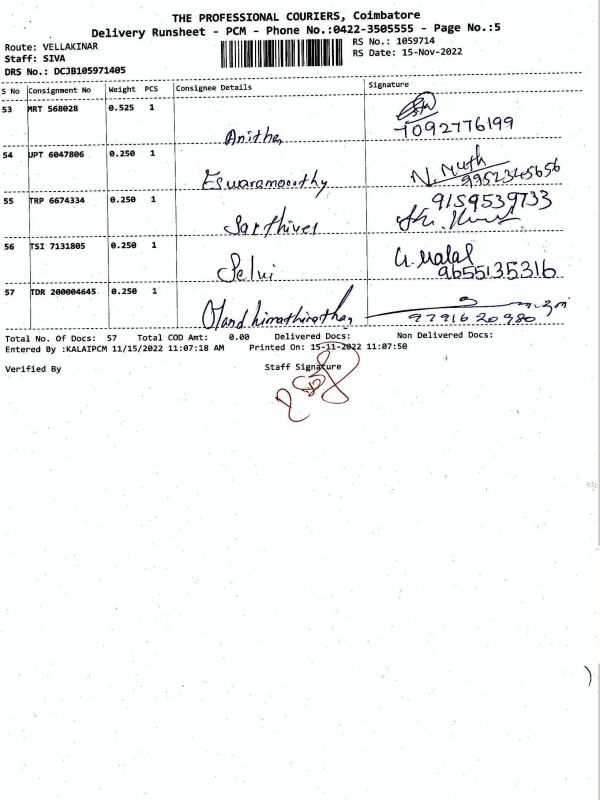 THE PROFESSIONAL COURIERS, Coimbatore
Delivery Runsheet - PCM - Phone No.:0422-3505555 - Page No.:5
Route: VELLAKINAR
RS No.: 1059714
Staff: SIVA
RS Date: 15-Nov-2022
DRS No.: DCJB105971405
S No Consignment No Weight PCS Consignee Details Signature
53 MRT 568028 0.525 1
Anitha 7092776199
54 UPT 6047806 0.250 1
Eswaramoorthy N. Muth 9952345656
55 TRP 6674334 0.250 1 9159539733
Sarthives
56 TSI 7131805 0.250 1
Selvi 9655135316
57 TDR 200004645 0.250 1
9791620980
Total No. Of Docs: 57 Total COD Amt: 0.00 Delivered Docs: Non Delivered Docs:
Entered By :KALAIPCM 11/15/2022 11:07:18 AM Printed On: 15-11-2022 11:07:50
Verified By Staff Signature